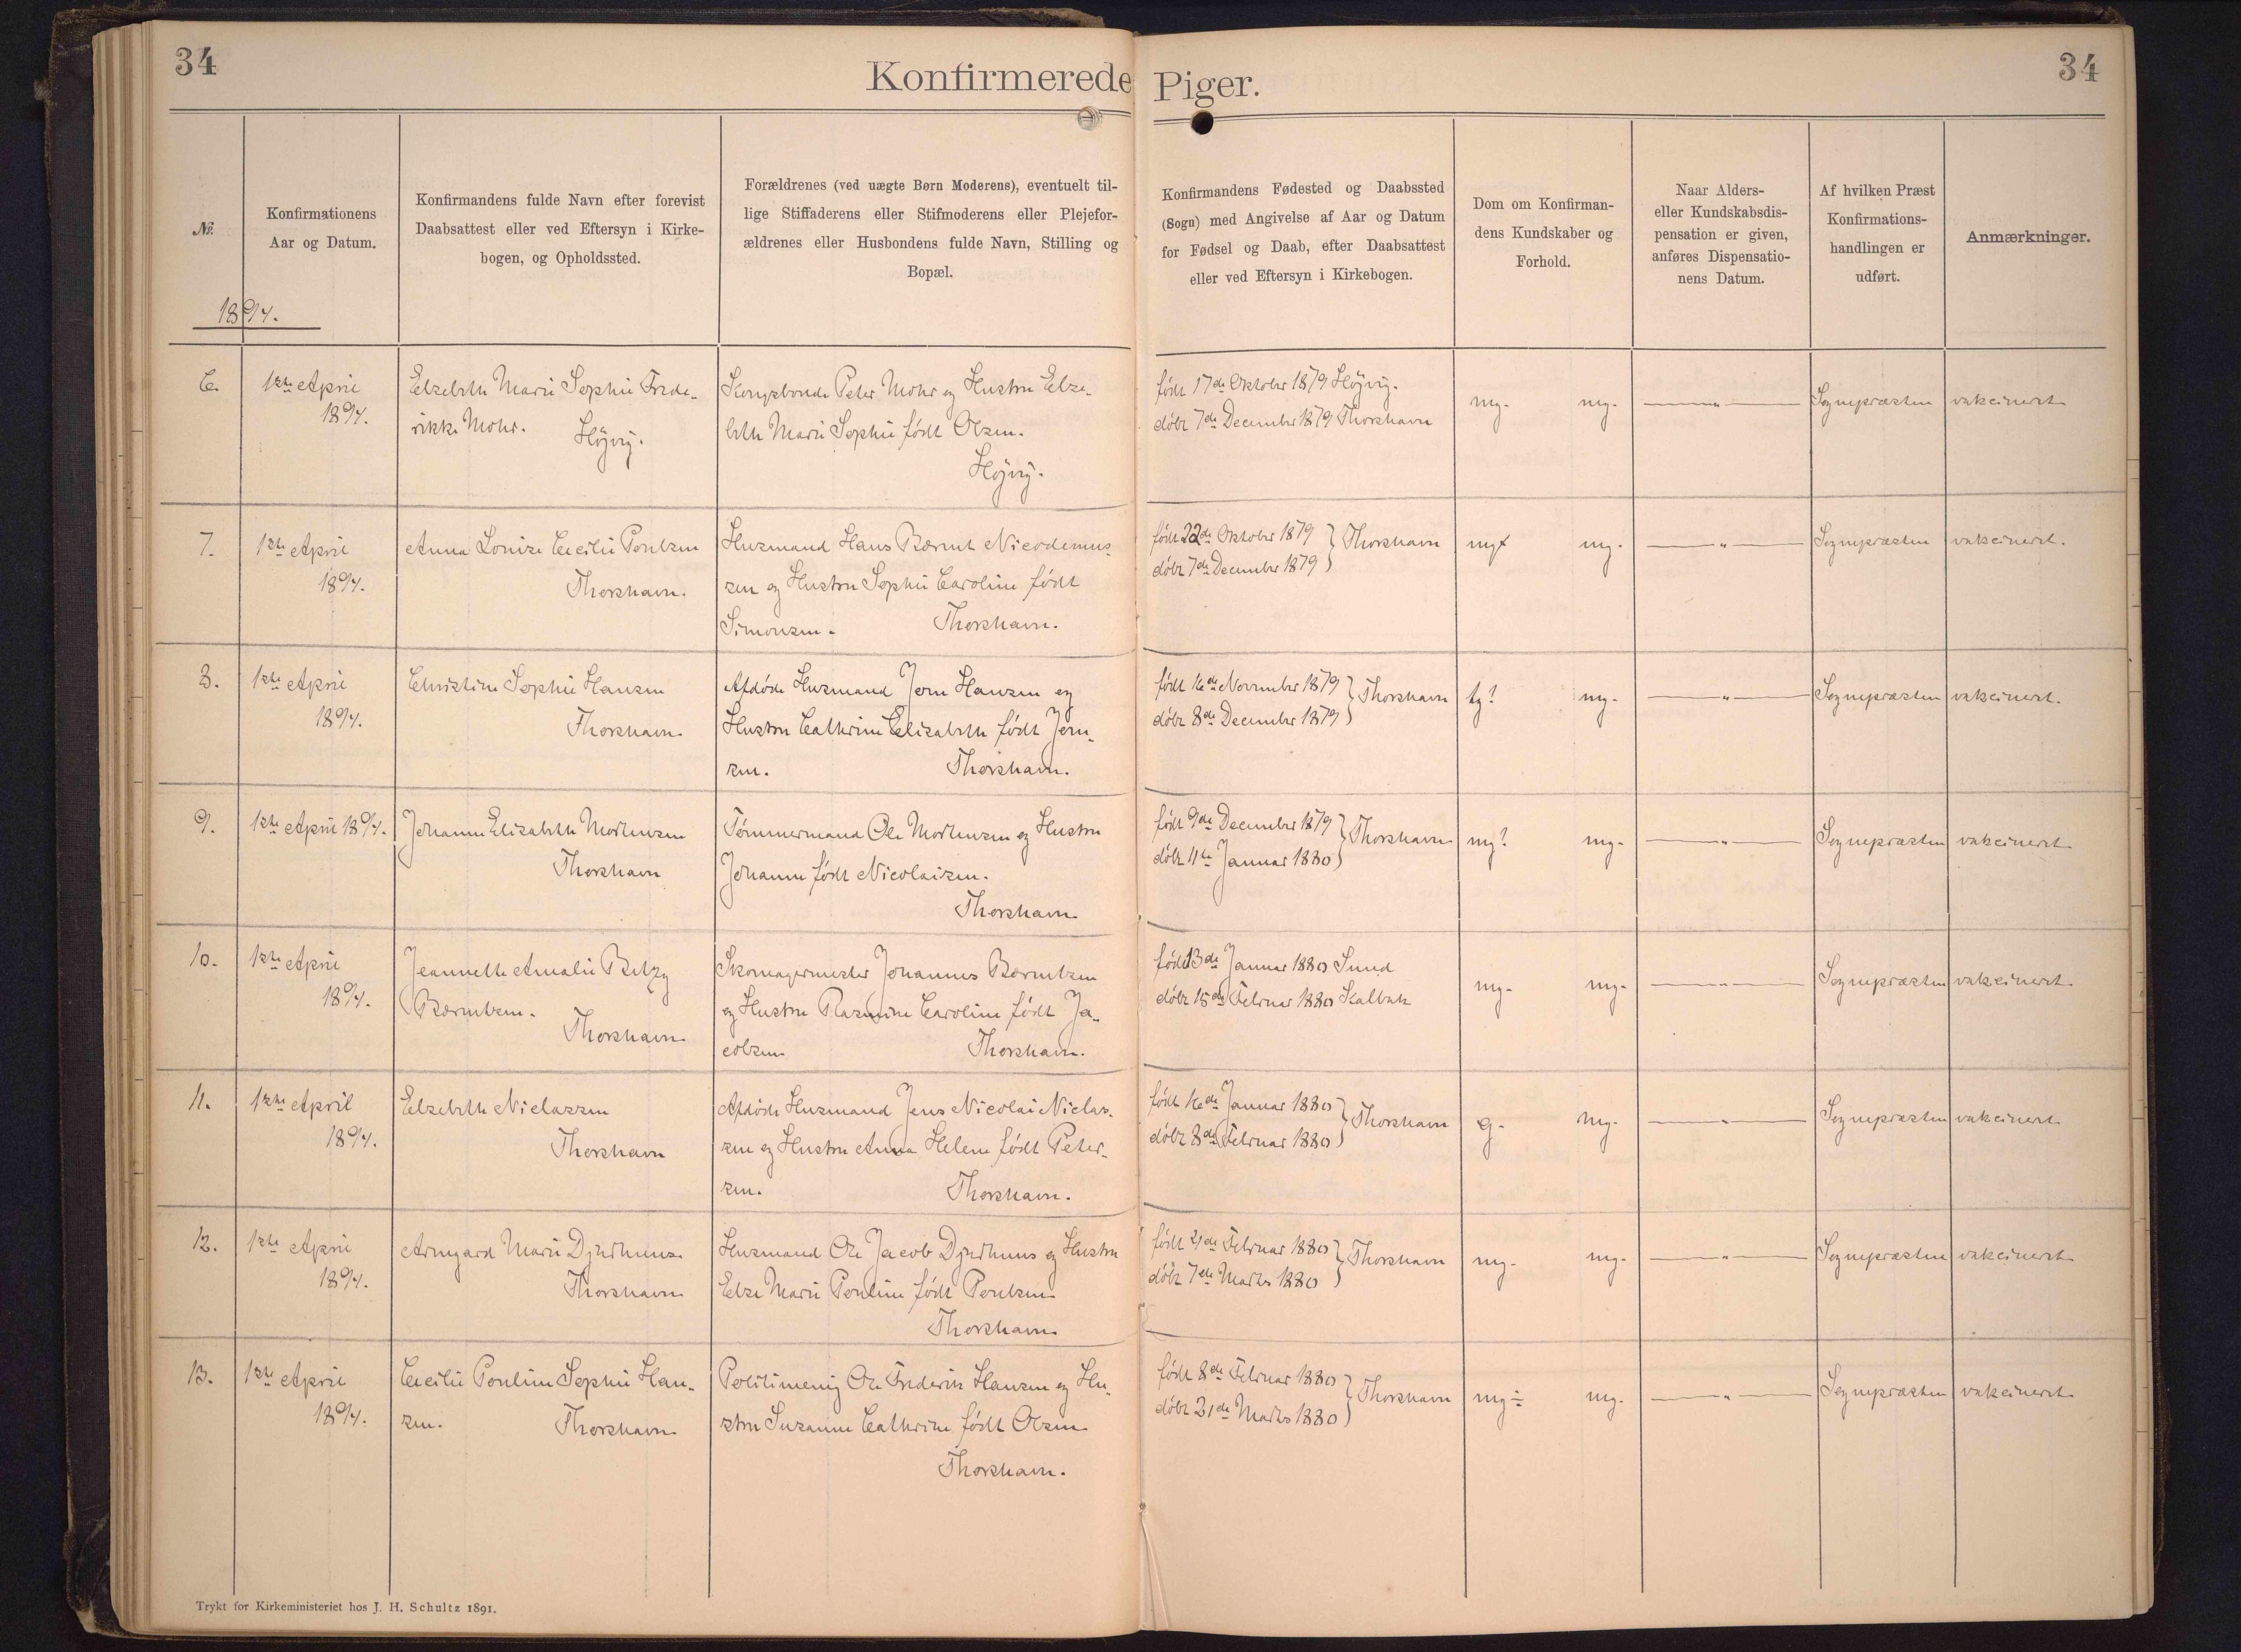 34
Konfirmerede Piger.
34
№.
Konfirmationens
Aar og Datum.
Konfirmandens fulde Navn efter forevist
Daabsattest eller ved Eftersyn i Kirke-
bogen, og Opholdssted.
Forældrenes (ved uægte Børn Moderens), eventuelt til-
lige Stiffaderens eller Stifmoderens eller Plejefor-
ældrenes eller Husbondens fulde Navn, Stilling og
Bopæl.
Konfirmandens Fødested og Daabssted
(Sogn) med Angivelse af Aar og Datum
for Fødsel og Daab, efter Daabsattest
eller ved Eftersyn i Kirkebogen.
Dom om Konfirman-
dens Kundskaber og
Forhold.
Naar Alders-
eller Kundskabsdis-
pensation er given,
anføres Dispensatio-
nens Datum.
Af hvilken Præst
Konfirmations-
handlingen er
udført.
Anmærkninger.
1894.
6.
1ste April
1894.
Elsebeth Marie Sophie Frede-
rikke Mohr.
Höjvig.
Kongsbonde Peter Mohr og Hustru Else-
beth Marie Sophie født Olsen.
Höjvig.
født 17de Oktober 1879 Höjvig.
døbt 7de December 1879 Thorshavn
mg-
mg-
"
Sognepræsten
vakcineret
7.
1ste April
1894.
Anna Louise Cecilie Poulsen
Thorshavn.
Husmand Hans Bærent Nicodemus-
sen og Hustru Sophie Caroline født
Simonsen.
Thorshavn.
født 22de Oktober 1879
døbt 7de December 1879
Thorshavn
mg+
mg-
"
Sognepræsten
vakcineret.
8.
1ste April
1894.
Christine Sophie Hansen
Thorshavn
Afdøde Husmand Jørn Hansen og
Hustru Cathrine Elisabeth født Jørn-
sen.
Thorshavn.
født 16de November 1879
døbt 8de December 1879
Thorshavn
tg?
mg-
"
Sognepræsten
vakcineret.
9.
1ste April 1894.
Johanne Elisabeth Mortensen
Thorshavn
Tømmermand Ole Mortensen og Hustru
Johanne født Nicolaisen.
Thorshavn
født 9de December 1879
døbt 11te Januar 1880
Thorshavn
mg?
mg-
"
Sognepræsten
vakcineret
10.
1ste April
1894.
Jeannette Amalie Betzy
Bærentsen.
Thorshavn
Skomagermester Johannes Bærentsen
og Hustru Rasmine Caroline født Ja-
cobsen
Thorshavn.
født 13de Januar 1880 Sund
døbt 15de Februar 1880 Kalbak
mg-
mg-
"
Sognepræsten
vakcineret
11.
1ste April
1894.
Elsebeth Niclassen
Thorshavn
Afdøde Husmand Jens Nicolai Niclas-
sen og Hustru Anna Helene født Peter-
sen.
Thorshavn.
født 16de Januar 1880
døbt 8de Februar 1880
Thorshavn
g-
mg-
"
Sognepræsten
vakcineret
12.
1ste April
1894.
Armgard Marie Djurhuus
Thorshavn
Husmand Ole Jacob Djurhuus og Hustru
Else Marie Pouline født Poulsen
Thorshavn
døbt 7de Marts 1880
Thorshavn
mg-
mg-
"
Sognepræsten
vakcineret
13.
1ste April
1894.
Cecilie Pouline Sophie Han-
sen.
Thorshavn
Politimenig Ole Frederik Hansen og Hu-
stru Susanne Cathrine født Olsen
Thorshavn.
født 8de Februar 1880
døbt 21de Marts 1880
Thorshavn
mg÷
mg-
"
Sognepræsten
vakcineret
Trykt for Kirkeministeriet hos J. H. Schultz 1891.